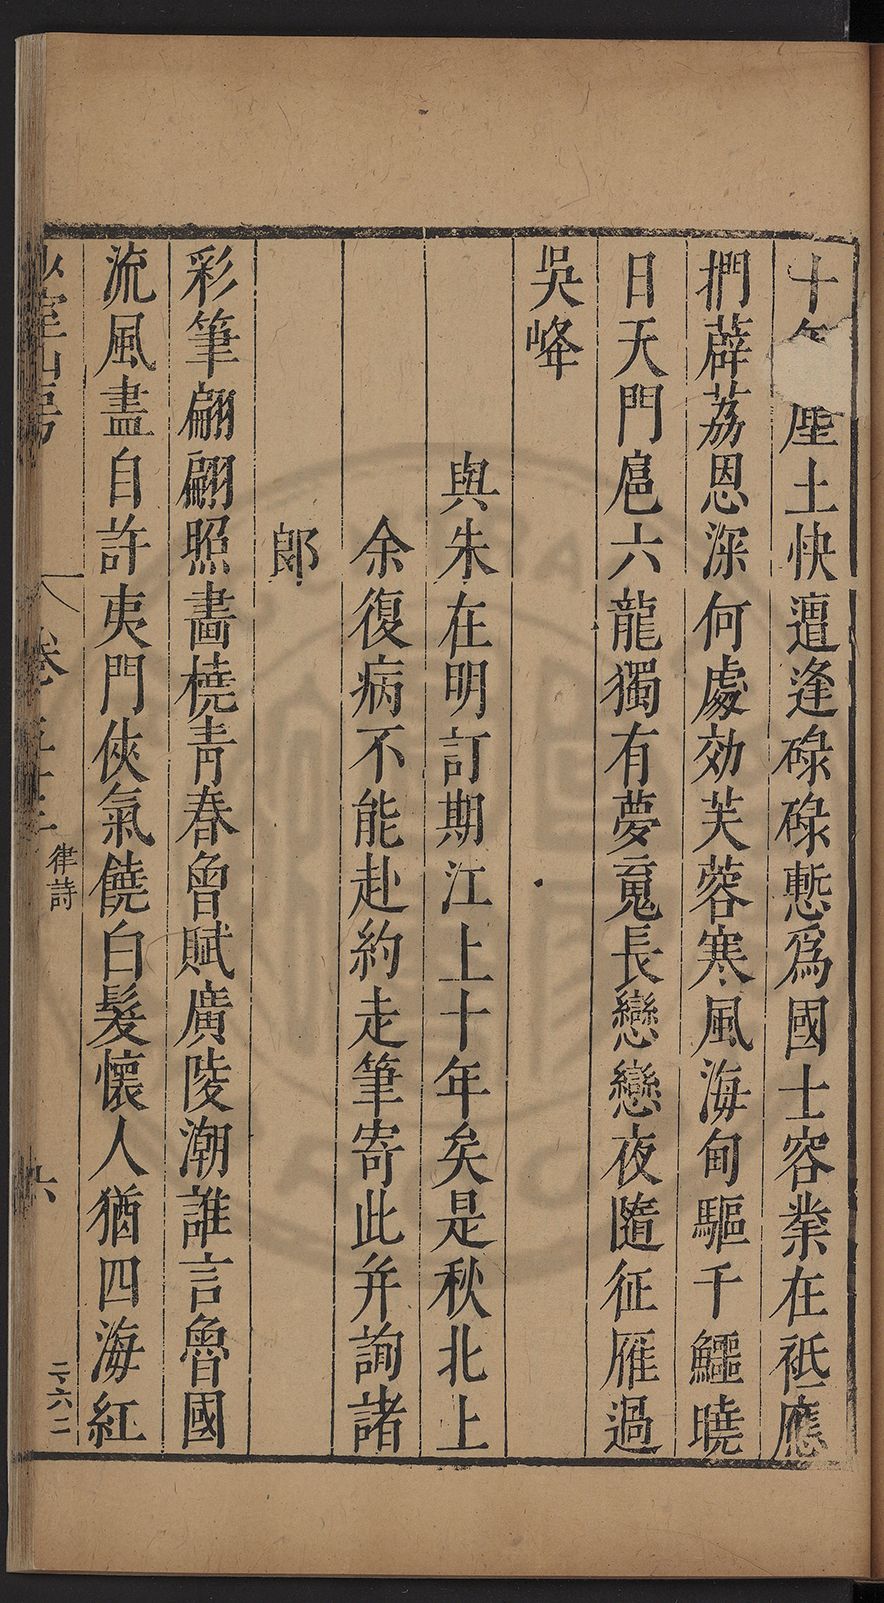 十年塵土快遭逢碌碌慙爲國士容業在祗應
捫薜荔恩深何處効芙蓉寒風海甸驅千鱷曉
日天門扈六龍獨有夢䰟長戀戀夜隨征雁過
吳峰
與朱在明訂期江上十年矣是秋北上
余復病不能赴約走筆寄此并詢諸
郎
彩筆翩翩照畵橈青春曾賦廣陵潮誰言魯國
流風盡自許夷門俠氣饒白髮懷人猶四海紅
少室山房
卷五十三
律詩
六
二六二